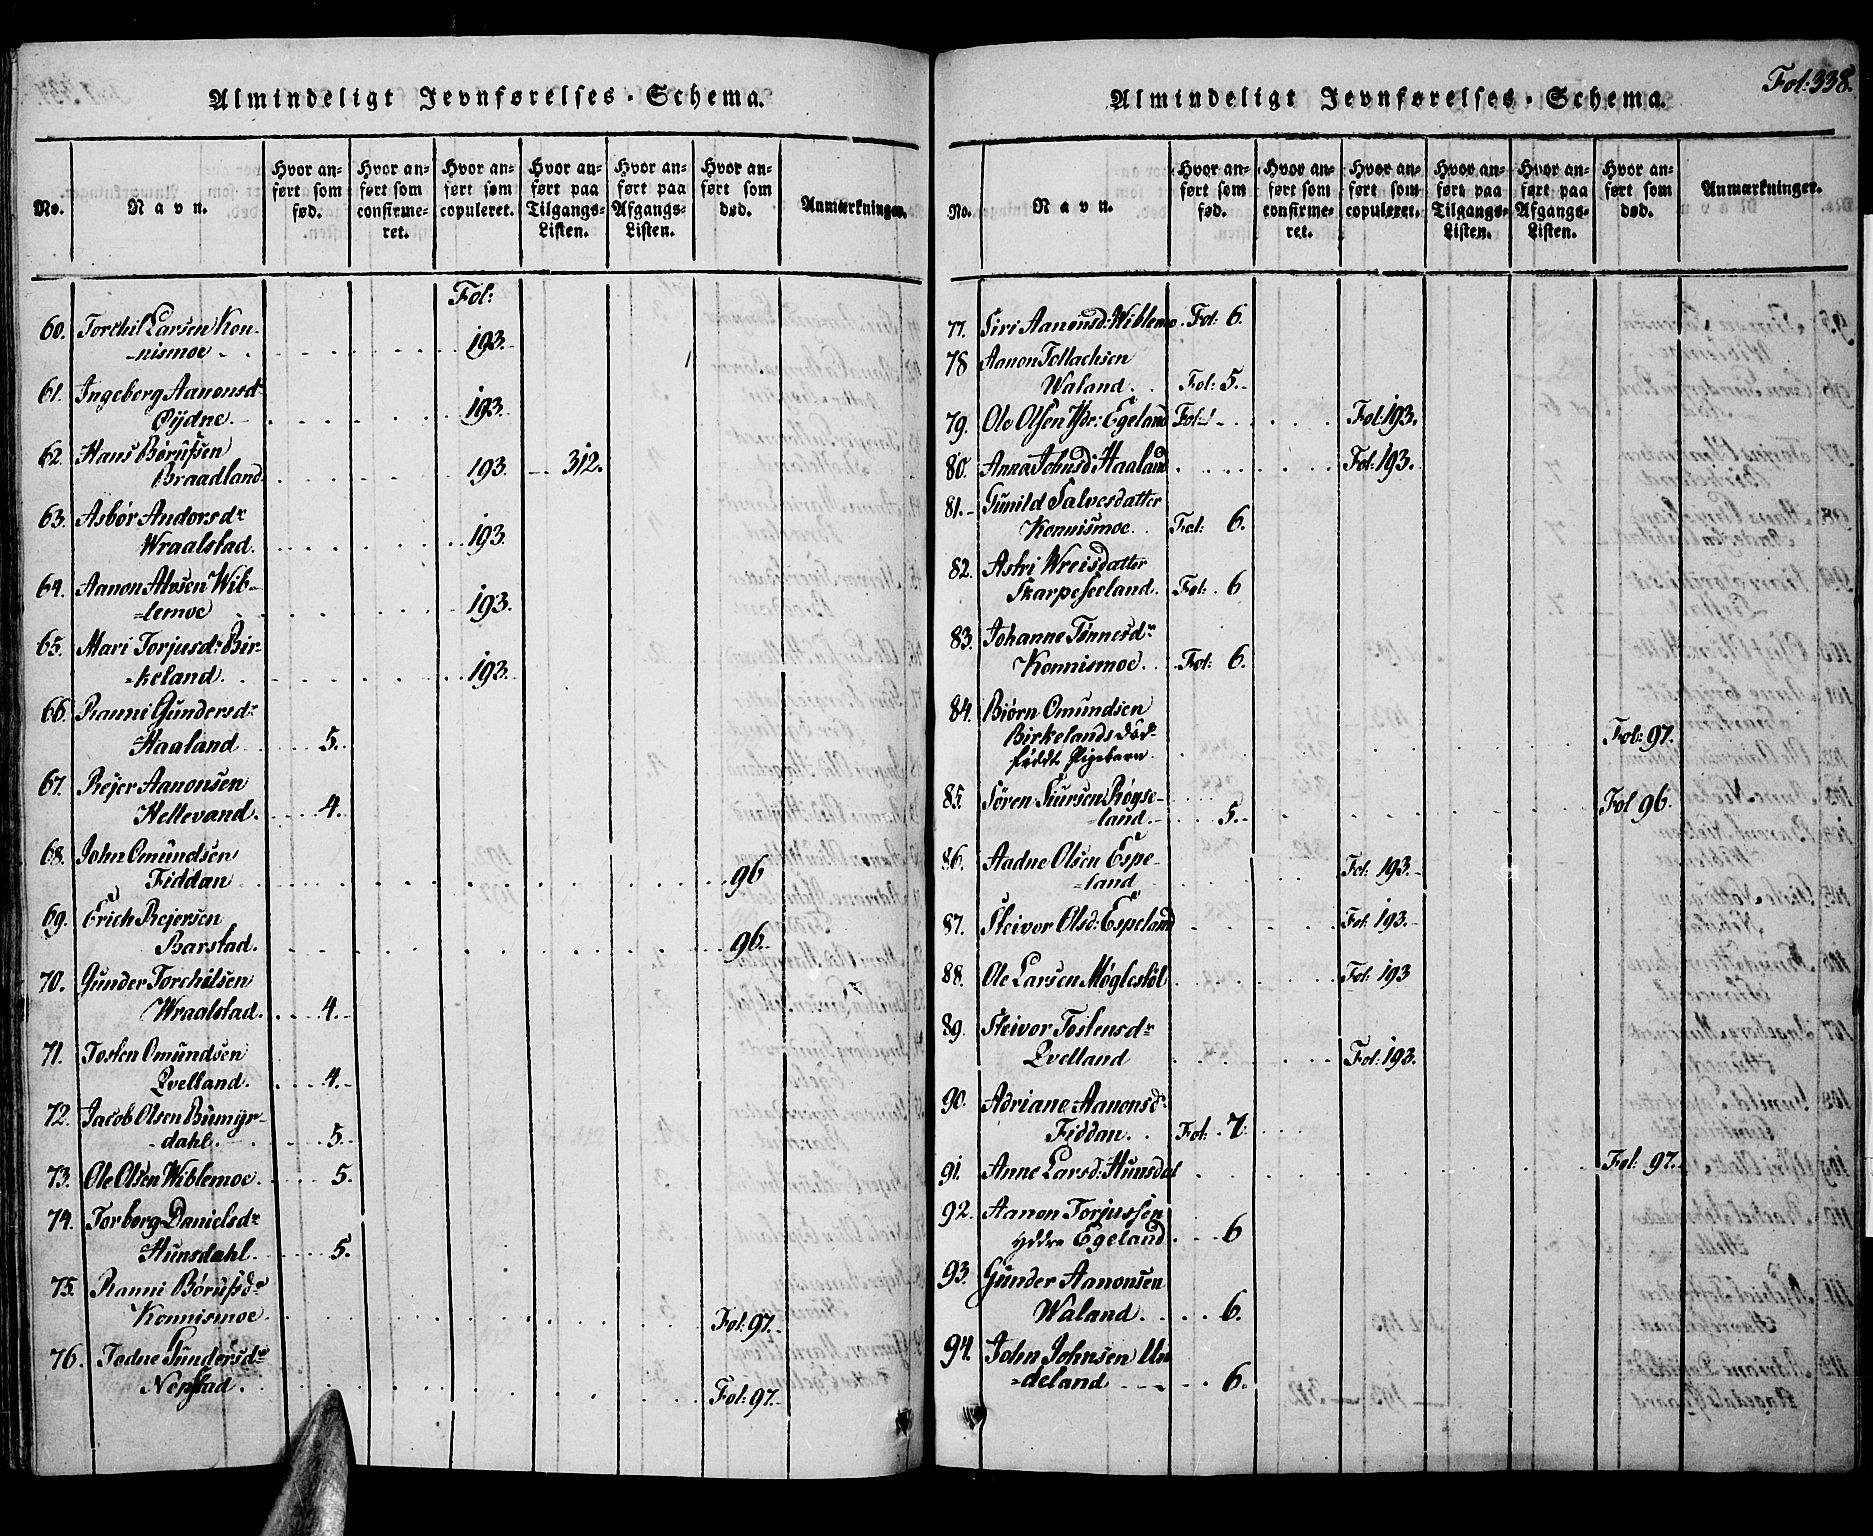 Almindeligt Jevnførelses-Schema.
No.
Navn.
Hvor an-
ført som
fød.
Hvor an-
ført som
confirme-
ret.
Hvor an-
ført som
copuleret.
Hvor an-
ført paa
Tilgangs-
Listen.
Hvor an-
ført paa
Afgangs-
Listen.
Hvor an-
ført som
død.
Anmærkninger.
Fol:
60. Torchil Larsen Kon-
-nismoe . . 193.
61. Ingeberg Aanonsdr
Øydne. 193.
62. Hans Børufsen
Braadland. 193. 312.
63. Asbør Andorsdr
Wraalstad. 193.
64. Aanon Alvsen Wib-
-lemoe 193.
65. Mari Torjusd: Bir-
-keland. 193.
66. Ranni Gundersdr
Haaland 5.
67. Rejer Aanonsen
Hellevand. 4.
68. John Omundsen
Fiddan 96
69. Erich Rejersen
Barstad. 96.
70. Gunder Torchilsen
Wraalstad. 4.
71. Tosten Omundsen
Qvelland. 4.
72. Jacob Olsen Bumyr-
-dahl. 5.
73. Ole Olsen Wiblemoe. 5.
74. Torborg Danielsdr
Hunsdahl. 5.
75. Ranni Børufsdr
Konnismoe. Fol: 97.
76. Todne Gundersdr
Nepstad. Fol: 97.
Fol: 338.
Almindeligt Jevnførelses-Schema.
No.
Navn.
Hvor an-
ført som
fød.
Hvor an-
ført som
confirme-
ret.
Hvor an-
ført som
copuleret.
Hvor an-
ført paa
Tilgangs-
Listen.
Hvor an-
ført paa
Afgangs-
Listen.
Hvor an-
ført som
død.
Anmærkninger.
77. Siri Aanonsd: Wiblemo Fol: 6.
78 Aanon Tollachsen
Waland. Fol: 5.
79. Ole Olsen Ydr: Egeland Fol: Fol 193.
80. Anna Johnsd: Haaland Fol: 193.
81. Gunild Salvesdatter
Konnismoe. Fol: 6.
82. Astri Wreisdatter
Skarpeseeland. Fol: 6
83. Johanne Tønnesdr
Konnismoe. Fol: 6.
84. Biørn Omundsen
Birkelands död-
födde Pigebarn. Fol: 97.
85. Søren Siursen Røyse-
-land. 5. Fol 96.
86. Aadne Olsen Espe-
-land Fol: 193.
87. Steivor Olsd: Espeland Fol: 193.
88. Ole Larsen Møglestöl Fol: 193
89. Steivor Tostensdr
Qvelland Fol: 193.
90. Adriane Aanonsdr
Fiddan. Fol: 7.
91. Anne Larsd: Hunsdal Fol: 97.
92. Aanon Torjussen
Yddre Egeland. 6
93. Gunder Aanonsen
Waland. 6.
94. John Johnsen Un
-deland 6.